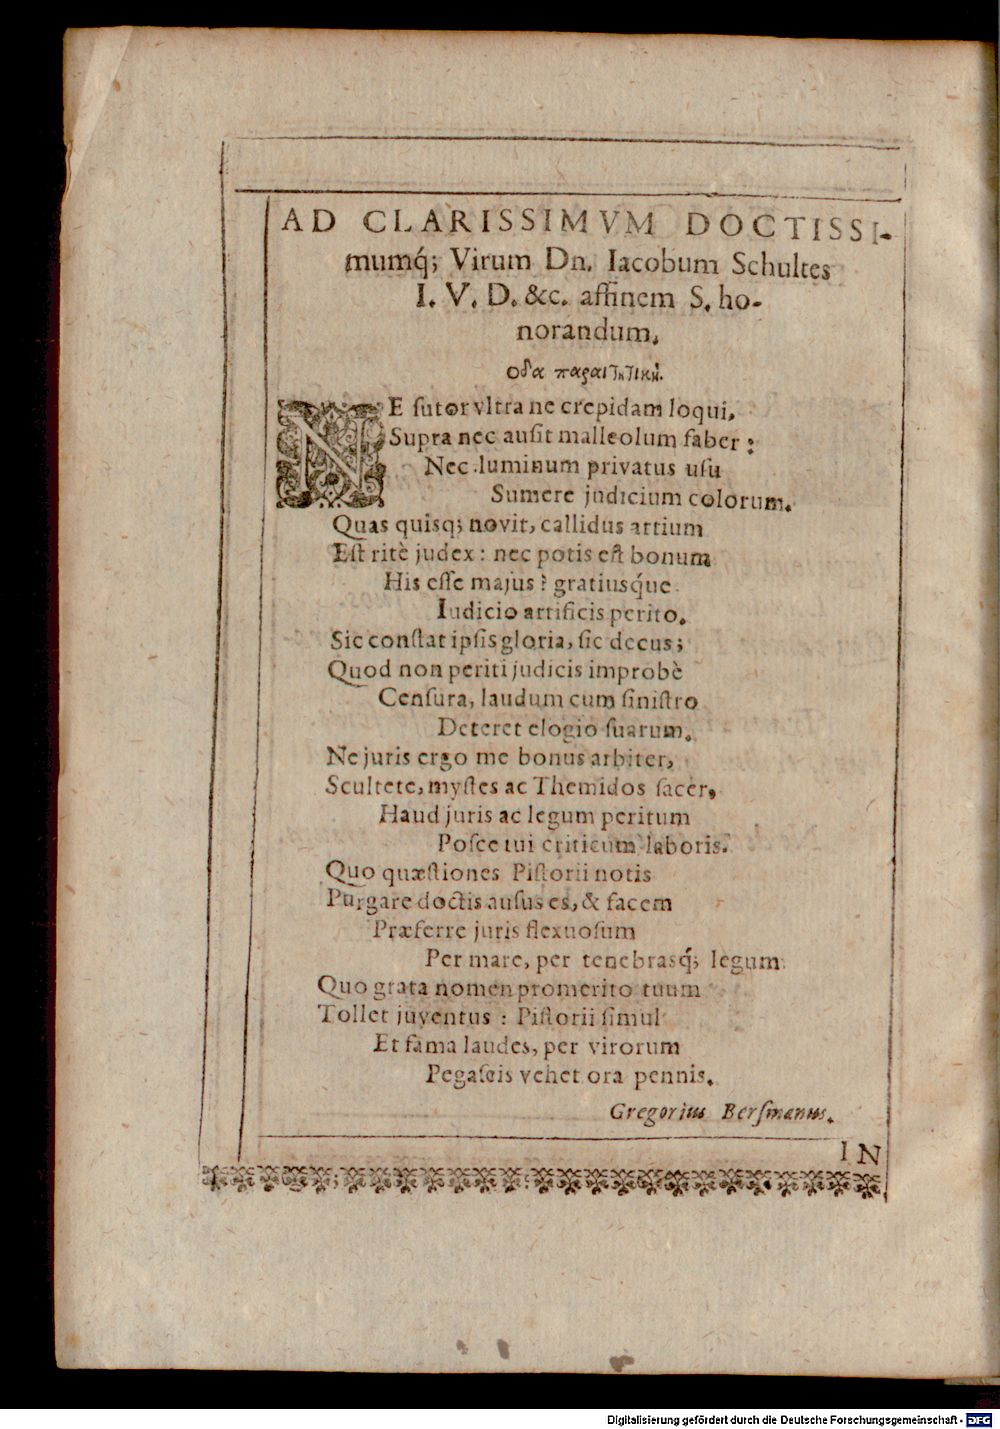 AD CLARISSIMVM DOCTISSI-
mumq́; Virum Dn. Iacobum Schultes
I. V. D. &c. affinem S. ho-
norandum.
οδα παραινετικὴ.
NE ſutor vltra ne crepidam loqui,
Supra nec auſit malleolum faber:
Nec luminum privatus uſu
Sumere judicium colorum.
Quas quisq; novit, callidus artium
Eſt ritè judex: nec potis eſt bonum
His eſſe majus? gratiusq́ue
Iudicio artificis perito.
Sic conſtat ipſis gloria, ſic decus;
Quod non periti judicis improbè
Cenſura, laudum cum ſiniſtro
Deteret elogio ſuarum.
Ne juris ergo me bonus arbiter,
Scultete, myſtes ac Themidos ſacer,
Haud juris ac legum peritum
Poſce tui criticum laboris.
Quo quæſtiones Piſtorii notis
Purgare doctis auſus es, & facem
Præferre juris flexuoſum
Per mare, per tenebrasq́; legum
Quo grata nomen promerito tuum
Tollet juventus: Piſtorii ſimul
Et fama laudes, per virorum
Pegaſeis vehet ora pennis.
Gregorius Berſmanus.
IN
Digitalisierung gefördert durch die Deutsche Forschungsgemeinschaft - DFG